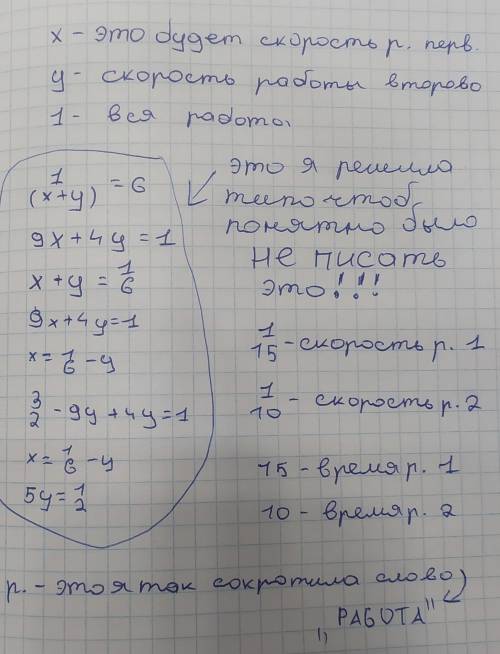 x - это будет скорость р. перв.
y - скорость работы второво
1 - вся работа
1/(x+y) = 6
9x + 4y = 1
x + y = 1/6
9x + 4y = 1
x = 1/6 - y
3/2 - 9y + 4y = 1
x = 1/6 - y
5y = 1/2
это я решила
типо чтоб
понятно было
не писать
это!!!
1/15 - скорость р. 1
1/10 - скорость р. 2
15 - время р. 1
10 - время р. 2
р. - это я так сократила слово
"РАБОТА"